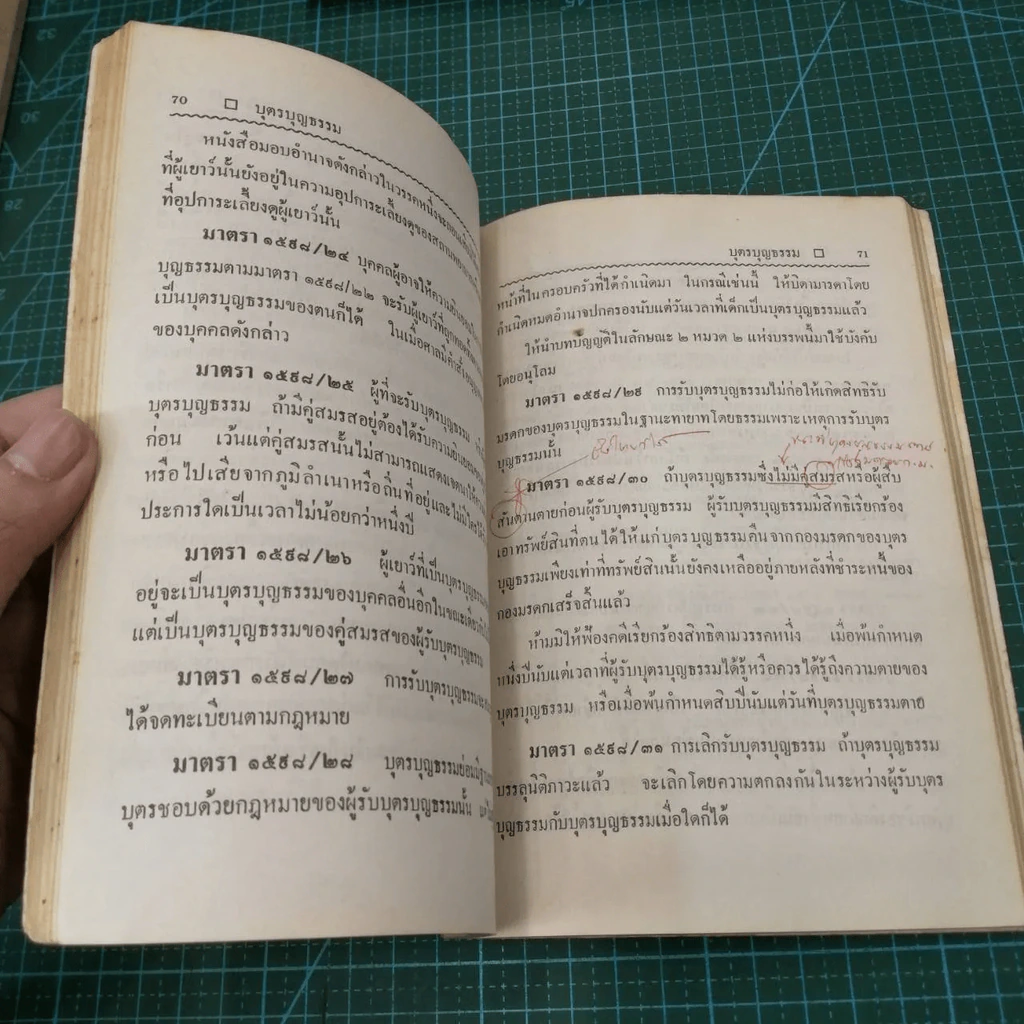 70 □ บุตรบุญธรรม
หนังสือมอบอำนาจดังกล่าวในวรรคหนึ่งจะถอนเสียมิได้
ที่ผู้เยาว์นั้นยังอยู่ในความอุปการะเลี้ยงดูของสถาน
ที่อุปการะเลี้ยงดูผู้เยาว์นั้น
มาตรา ๑๕๙๘/๒๔ บุคคลผู้อาจให้ความยินยอม
บุญธรรมตามมาตรา ๑๕๙๘/๒๒ จะรับผู้เยาว์ที่ถูกทอดทิ้ง
เป็นบุตรบุญธรรมของตนก็ได้ ในเมื่อศาลมีคำสั่ง
ของบุคคลดังกล่าว
มาตรา ๑๕๙๘/๒๕ ผู้ที่จะรับบุตรบุญธรรม
บุตรบุญธรรม ถ้ามีคู่สมรสอยู่ต้องได้รับความยินยอม
ก่อน เว้นแต่คู่สมรสนั้นไม่สามารถแสดงเจตนาให้
หรือไปเสียจากภูมิลำเนาหรือถิ่นที่อยู่และไม่มีใคร
ประการใดเป็นเวลาไม่น้อยกว่าหนึ่งปี
มาตรา ๑๕๙๘/๒๖ ผู้เยาว์ที่เป็นบุตรบุญธรรม
อยู่จะเป็นบุตรบุญธรรมของบุคคลอื่นอีกในขณะเดียวกัน
แต่เป็นบุตรบุญธรรมของคู่สมรสของผู้รับบุตรบุญธรรม
มาตรา ๑๕๙๘/๒๗ การรับบุตรบุญธรรม
ได้จดทะเบียนตามกฎหมาย
มาตรา ๑๕๙๘/๒๘ บุตรบุญธรรมย่อมมีฐานะ
บุตรชอบด้วยกฎหมายของผู้รับบุตรบุญธรรมนั้น
บุตรบุญธรรม □ 71
หน้าที่ในครอบครัวที่ได้กำเนิดมา ในกรณีเช่นนี้ ให้บิดามารดาโดย
กำเนิดหมดอำนาจปกครองนับแต่วันเวลาที่เด็กเป็นบุตรบุญธรรมแล้ว
ให้นำบทบัญญัติในลักษณะ ๒ หมวด ๒ แห่งบรรพนี้มาใช้บังคับ
โดยอนุโลม
มาตรา ๑๕๙๘/๒๙ การรับบุตรบุญธรรมไม่ก่อให้เกิดสิทธิรับ
มรดกของบุตรบุญธรรมในฐานะทายาทโดยธรรมเพราะเหตุการรับบุตร
บุญธรรมนั้น
มาตรา ๑๕๙๘/๓๐ ถ้าบุตรบุญธรรมซึ่งไม่มีคู่สมรสหรือผู้สืบ
สันดานตายก่อนผู้รับบุตรบุญธรรม ผู้รับบุตรบุญธรรมมีสิทธิเรียกร้อง
เอาทรัพย์สินที่ตนได้ให้แก่บุตรบุญธรรมคืนจากกองมรดกของบุตร
บุญธรรมเพียงเท่าที่ทรัพย์สินนั้นยังคงเหลืออยู่ภายหลังที่ชำระหนี้ของ
กองมรดกเสร็จสิ้นแล้ว
ห้ามมิให้ฟ้องคดีเรียกร้องสิทธิตามวรรคหนึ่ง เมื่อพ้นกำหนด
หนึ่งปีนับแต่เวลาที่ผู้รับบุตรบุญธรรมได้รู้หรือควรได้รู้ถึงความตายของ
บุตรบุญธรรม หรือเมื่อพ้นกำหนดสิบปีนับแต่วันที่บุตรบุญธรรมตาย
มาตรา ๑๕๙๘/๓๑ การเลิกรับบุตรบุญธรรม ถ้าบุตรบุญธรรม
บรรลุนิติภาวะแล้ว จะเลิกโดยความตกลงกันในระหว่างผู้รับบุตร
บุญธรรมกับบุตรบุญธรรมเมื่อใดก็ได้